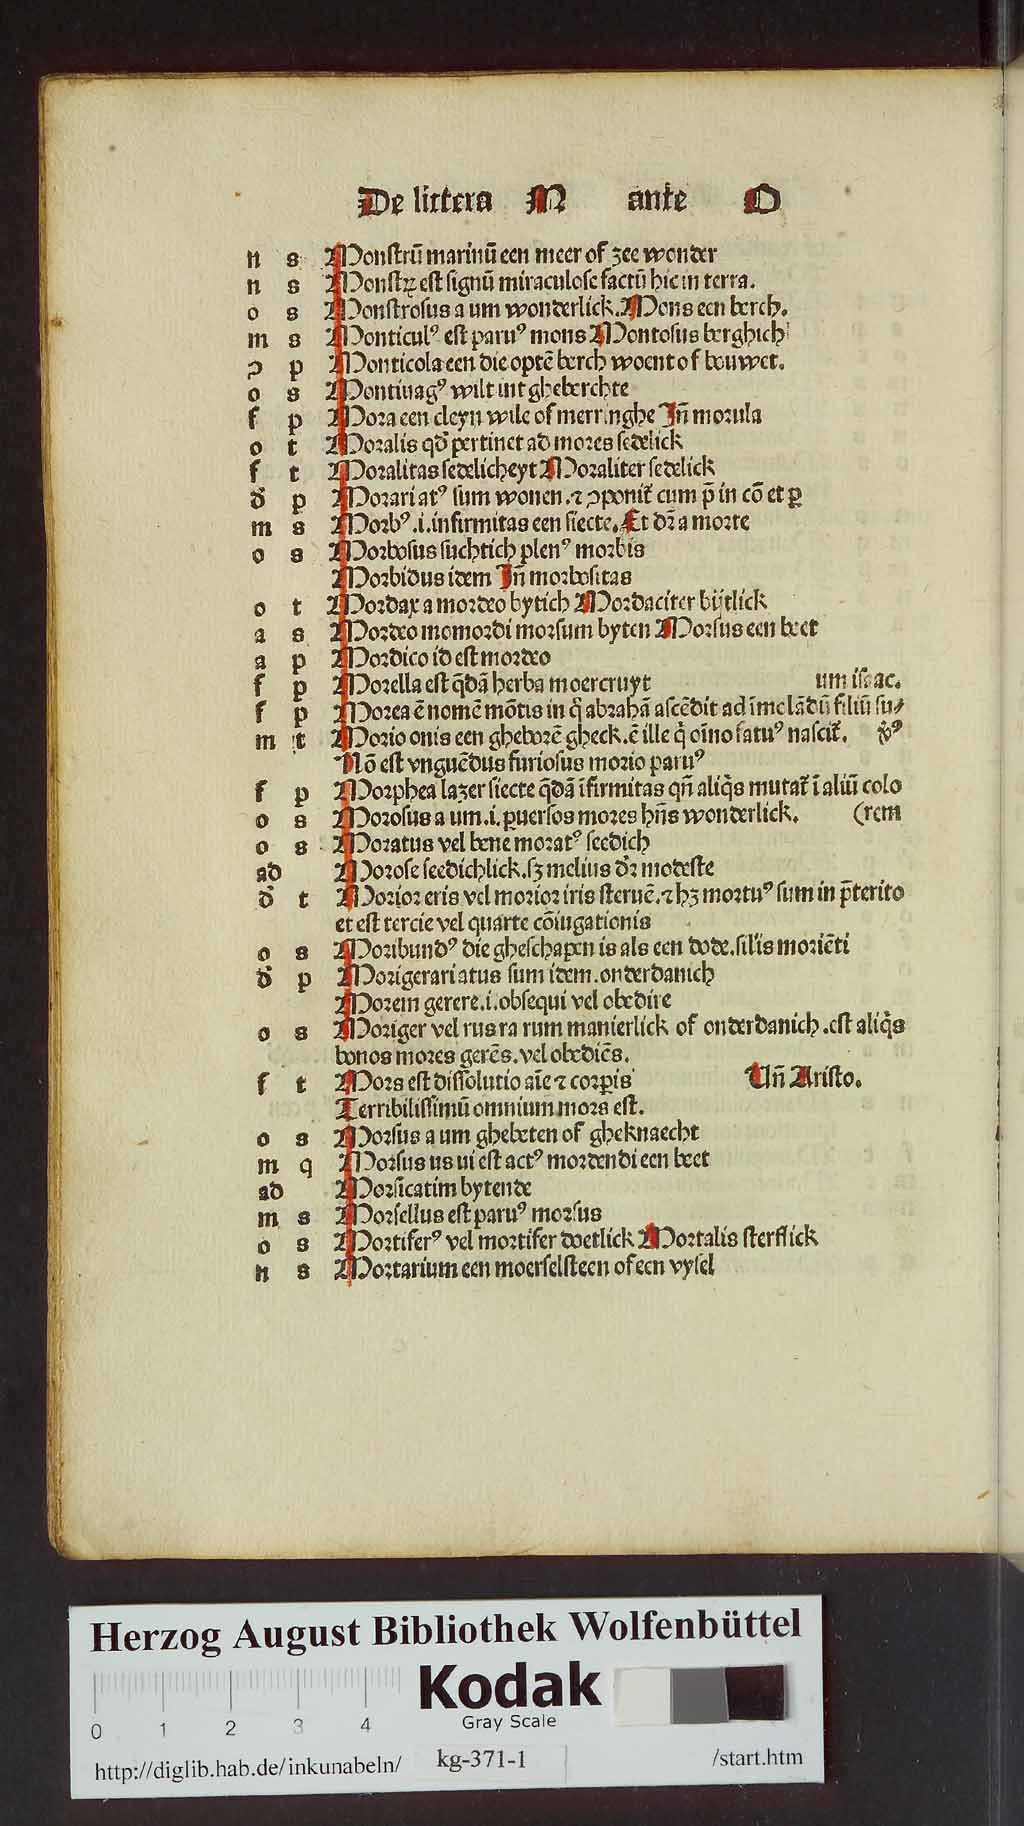 De littera M ante O
n s Monstrū marinū een meer of zee wonder
n s Monstꝝ est signū miraculose factū hic in terra.
o s Monstrosus a um wonderlick. Mons een berch.
m s Monticulꝰ est paruꝰ mons Montosus berghich
ɔ p Monticola een die optē berch woent of bouwet.
o s Montiuagꝰ wilt int gheberchte
f p Mora een cleyn wile of merringhe Jn̄ morula
o t Moralis qd̓ pertinet ad mores sedelick
f t Moralitas sedelicheyt Moraliter sedelick
d̓ p Morari atꝰ sum wonen. ⁊ ɔponit̓ cum p̄ in cō et ꝑ
m s Morbꝰ .i. infirmitas een siecte. Et dr̄ a morte
o s Morbosus suchtich plenꝰ morbis
Morbidus idem Jn̄ morbositas
o t Mordax a mordeo bytich Mordaciter bijtlick
a s Mordeo momordi morsum byten Morsus een beet
a p Mordico id est mordeo
f p Morella est q̄dā herba moercruyt um isaac.
f p Morea ē nomē mōtis in q̓ abrahā ascēdit ad īmolādū filiū su⸗
m t Morio onis een gheborē gheck. ē ille q̓ oīno fatuꝰ nascit̓. v̓ꝰ
Nō est vnguēdus furiosus morio paruꝰ
f p Morphea lazer siecte q̄dā īfirmitas qn̄ aliq̓s mutat̓ ī aliū colo
o s Morosus a um .i. ꝑuersos mores hn̄s wonderlick. (rem
o s Moratus vel bene moratꝰ seedich
ad Morose seedichlick. sꝫ melius dr̄ modeste
d̓ t Morior eris vel morior iris steruē. ⁊ hꝫ mortuꝰ sum in p̄terito
et est tercie vel quarte cōiugationis
o s Moribundꝰ die gheschapen is als een dode. silīs moriēti
d̓ p Morigerari atus sum idem. onderdanich
Morem gerere .i. obsequi vel obedire
o s Moriger vel rus ra rum manierlick of onderdanich. est aliq̓s
bonos mores gerēs. vel obediēs.
f t Mors est dissolutio aīe ⁊ corꝑis Un̄ Aristo.
Terribilissimū omnium mors est.
o s Morsus a um ghebeten of gheknaecht
m q Morsus us ui est actꝰ mordendi een beet
ad Morsicatim bytende
m s Morsellus est paruꝰ morsus
o s Mortiferꝰ vel mortifer doetlick Mortalis sterflick
n s Mortarium een moerselsteen of een vysel
Herzog August Bibliothek Wolfenbüttel
Kodak
Gray Scale
0 1 2 3 4
http://diglib.hab.de/inkunabeln/ kg-371-1 /start.htm